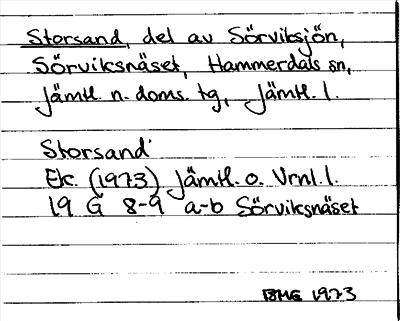 Storsand, del av Sörviksjön,
Sörviksnäset, Hammerdals sn,
Jämtl. n. doms. tg, Jämtl. l.
Storsand
Ek. (1973) Jämtl. o. Vrnl. l.
19 G 8-9 a-b Sörviksnäset
BMG 1973